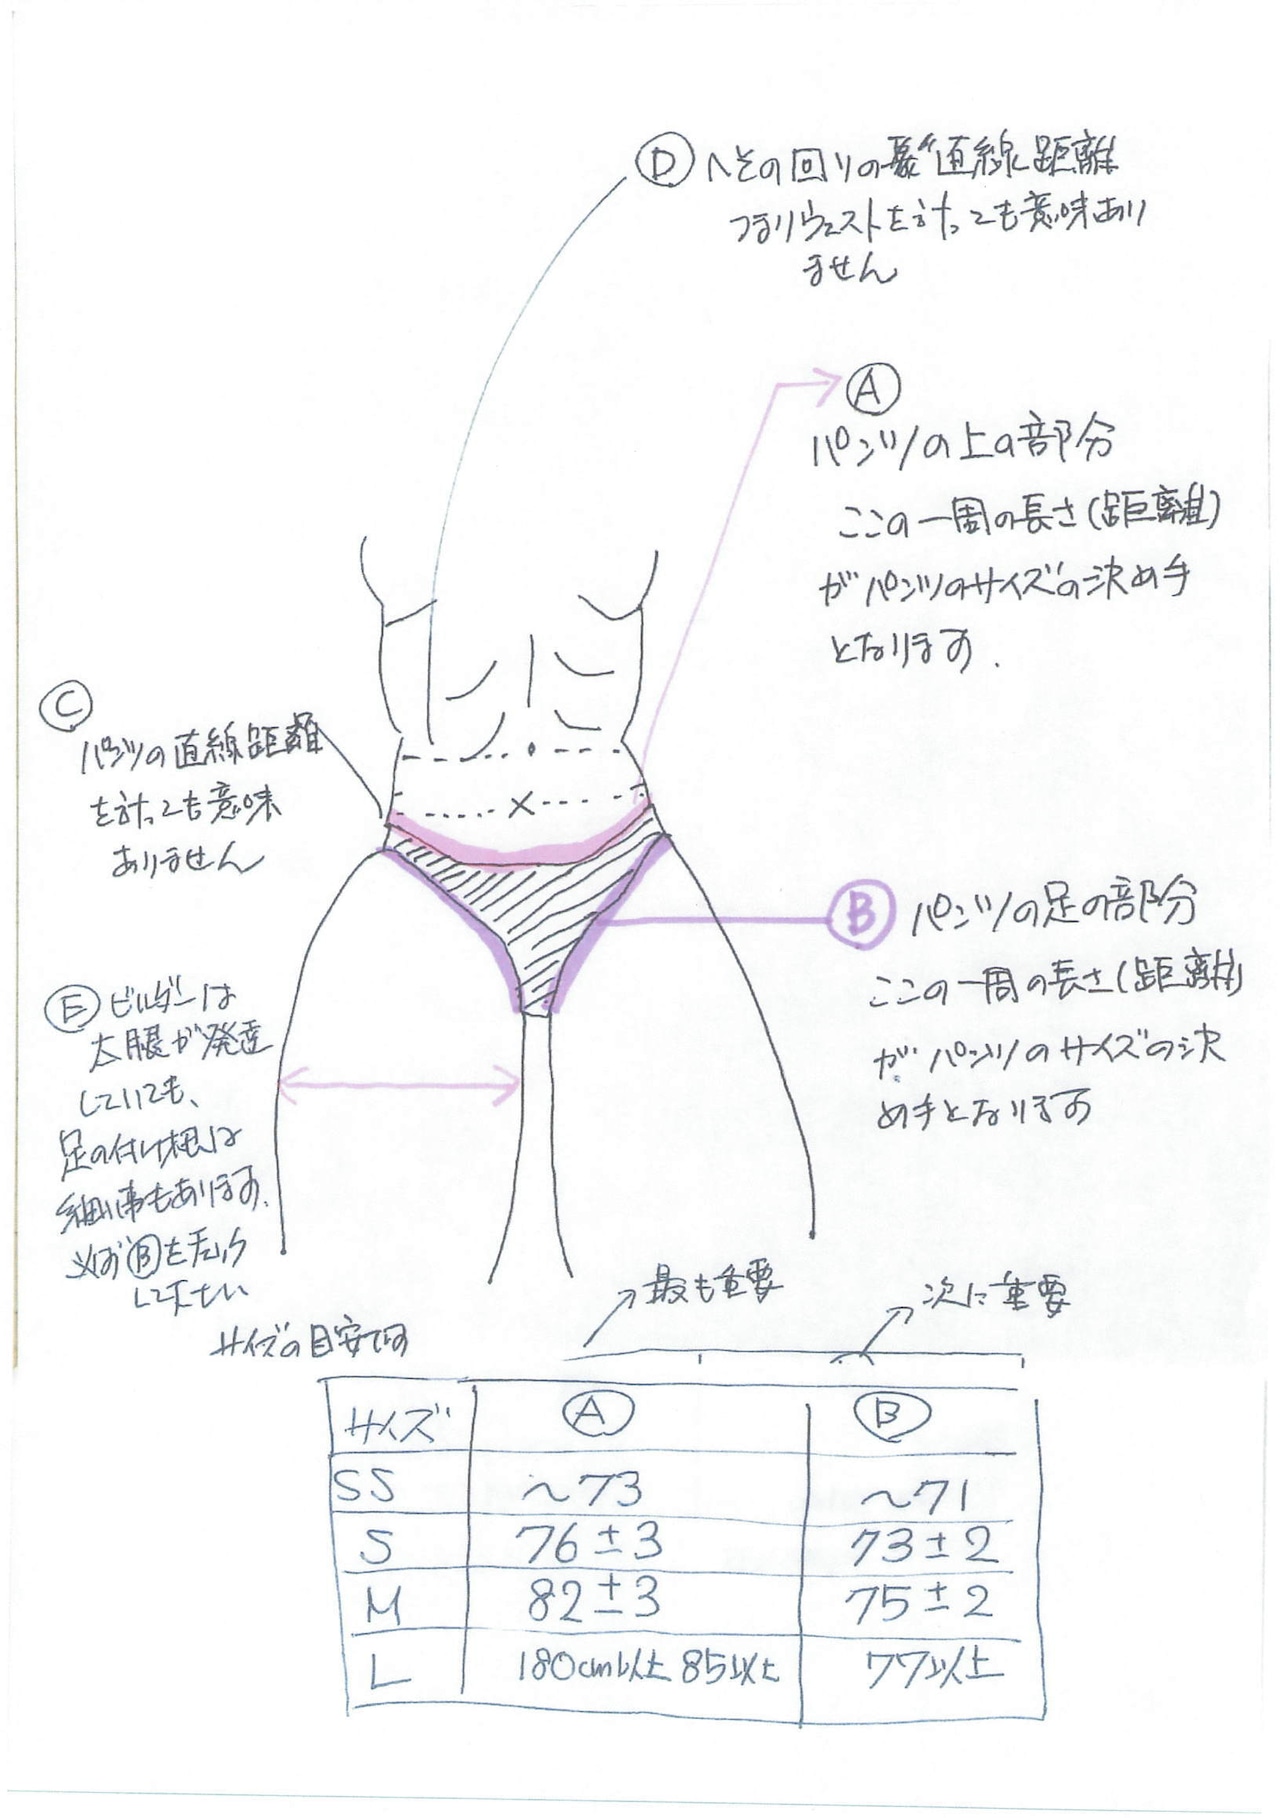 Ⓓ へその回りの直線距離
つまりウェストを計っても意味あり
ません
Ⓐ
パンツの上の部分
ここの一周の長さ(距離)
がパンツのサイズの決め手
となります.
Ⓒ
パンツの直線距離
を計っても意味
ありません
Ⓑ パンツの足の部分
ここの一周の長さ(距離)
がパンツのサイズの決
め手となります
Ⓔ ビルダーは
太腿が発達
していても、
足の付け根は
細い事もあります.
必ずⒷをチェック
して下さい
サイズの目安です
最も重要
次に重要
サイズ Ⓐ Ⓑ
SS ~73 ~71
S 76±3 73±2
M 82±3 75±2
L 180cm以上 85以上 77以上